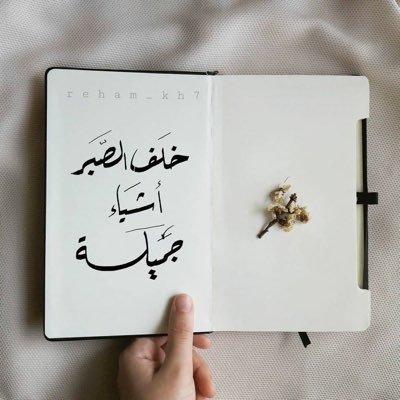 reham_kh7
خَلَف الصَّبَر
أشيَاء
جَميَلَة